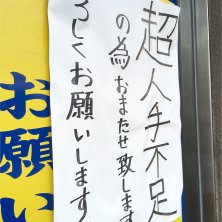 超人手不足
の為おまたせ致します
ろしくお願いします
お願い